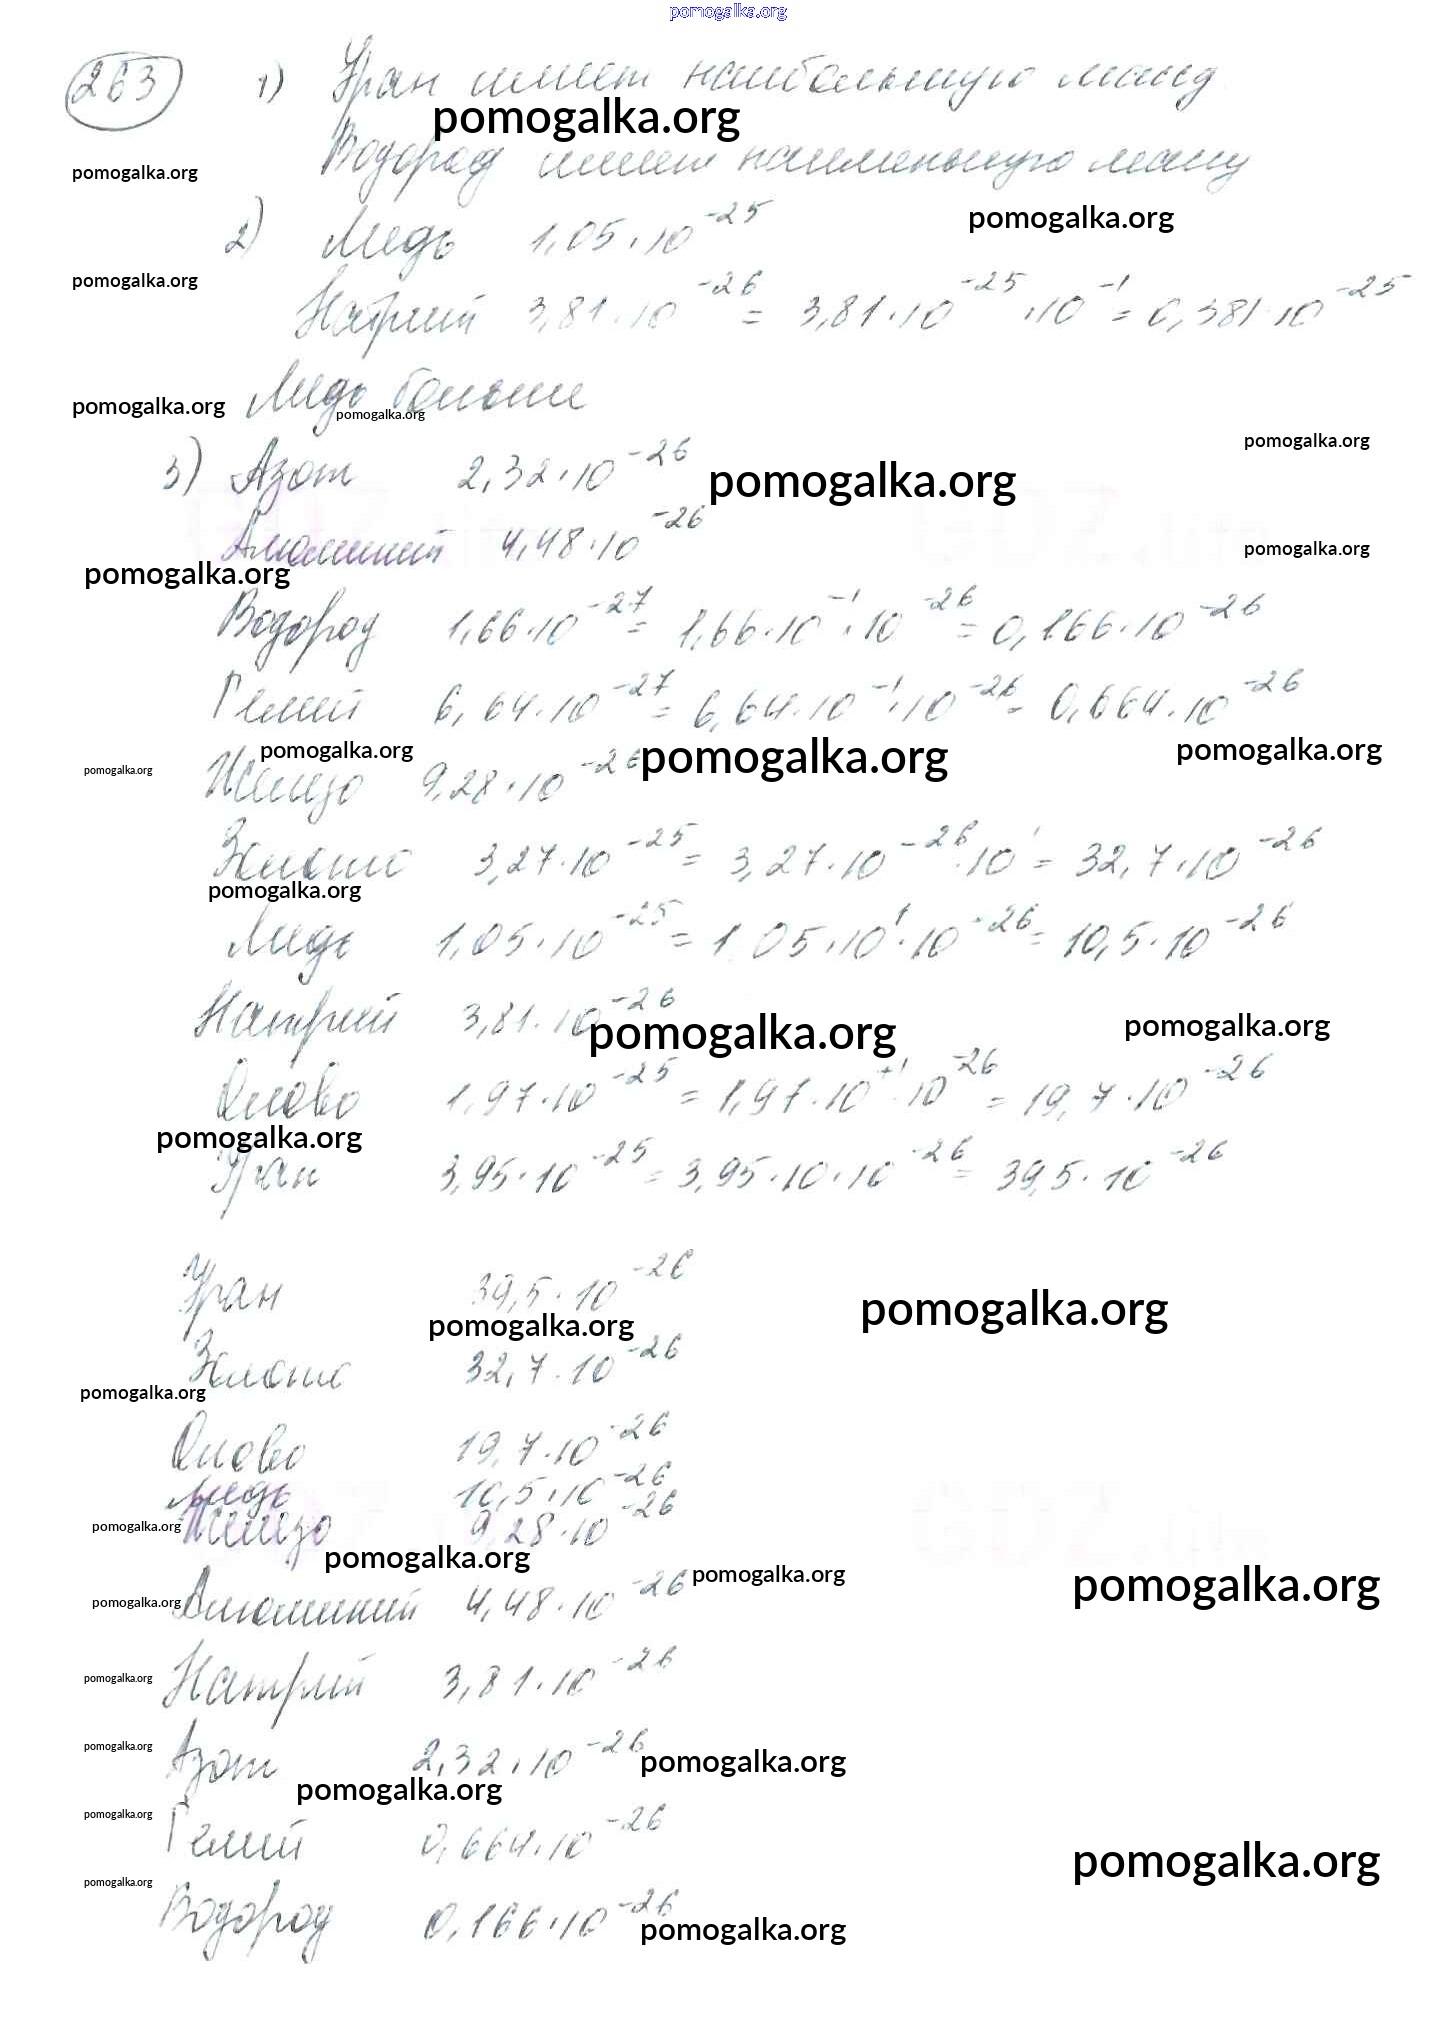 pomogalka.org
263 1) Уран имеет наибольшую массу
pomogalka.org
Водород имеет наименьшую массу
pomogalka.org
2) Медь 1,05·10⁻²⁵
pomogalka.org
pomogalka.org
Натрий 3,81·10⁻²⁶ = 3,81·10⁻²⁵·10⁻¹ = 0,381·10⁻²⁵
Медь больше
pomogalka.org
pomogalka.org
pomogalka.org
3) Азот 2,32·10⁻²⁶
pomogalka.org
Алюминий 4,48·10⁻²⁶
pomogalka.org
pomogalka.org
Водород 1,66·10⁻²⁷ = 1,66·10⁻¹·10⁻²⁶ = 0,166·10⁻²⁶
Гелий 6,64·10⁻²⁷ = 6,64·10⁻¹·10⁻²⁶ = 0,664·10⁻²⁶
pomogalka.org
pomogalka.org
pomogalka.org
pomogalka.org
Железо 9,28·10⁻²⁶
Золото 3,27·10⁻²⁵ = 3,27·10⁻²⁶·10¹ = 32,7·10⁻²⁶
pomogalka.org
Медь 1,05·10⁻²⁵ = 1,05·10¹·10⁻²⁶ = 10,5·10⁻²⁶
Натрий 3,81·10⁻²⁶
pomogalka.org
pomogalka.org
Олово 1,97·10⁻²⁵ = 1,97·10⁺¹·10⁻²⁶ = 19,7·10⁻²⁶
pomogalka.org
Уран 3,95·10⁻²⁵ = 3,95·10·10⁻²⁶ = 39,5·10⁻²⁶
Уран 39,5·10⁻²⁶
pomogalka.org
pomogalka.org
Золото 32,7·10⁻²⁶
pomogalka.org
Олово 19,7·10⁻²⁶
Медь 10,5·10⁻²⁶
Железо 9,28·10⁻²⁶
pomogalka.org
pomogalka.org
pomogalka.org
pomogalka.org
Алюминий 4,48·10⁻²⁶
pomogalka.org
Натрий 3,81·10⁻²⁶
pomogalka.org
Азот 2,32·10⁻²⁶
pomogalka.org
pomogalka.org
pomogalka.org
Гелий 0,664·10⁻²⁶
pomogalka.org
pomogalka.org
pomogalka.org
Водород 0,166·10⁻²⁶
pomogalka.org